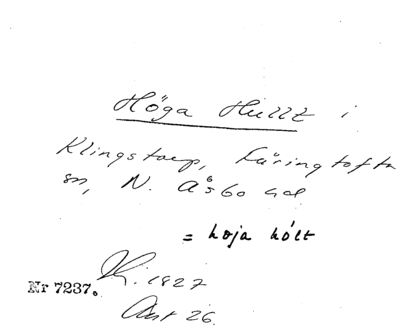 Höga Hullt i
Klingstorp, Färingtofta
sn, N. Åsbo hd
= hoja hólt
K. 1827
Nr 7237.
Akt 26.